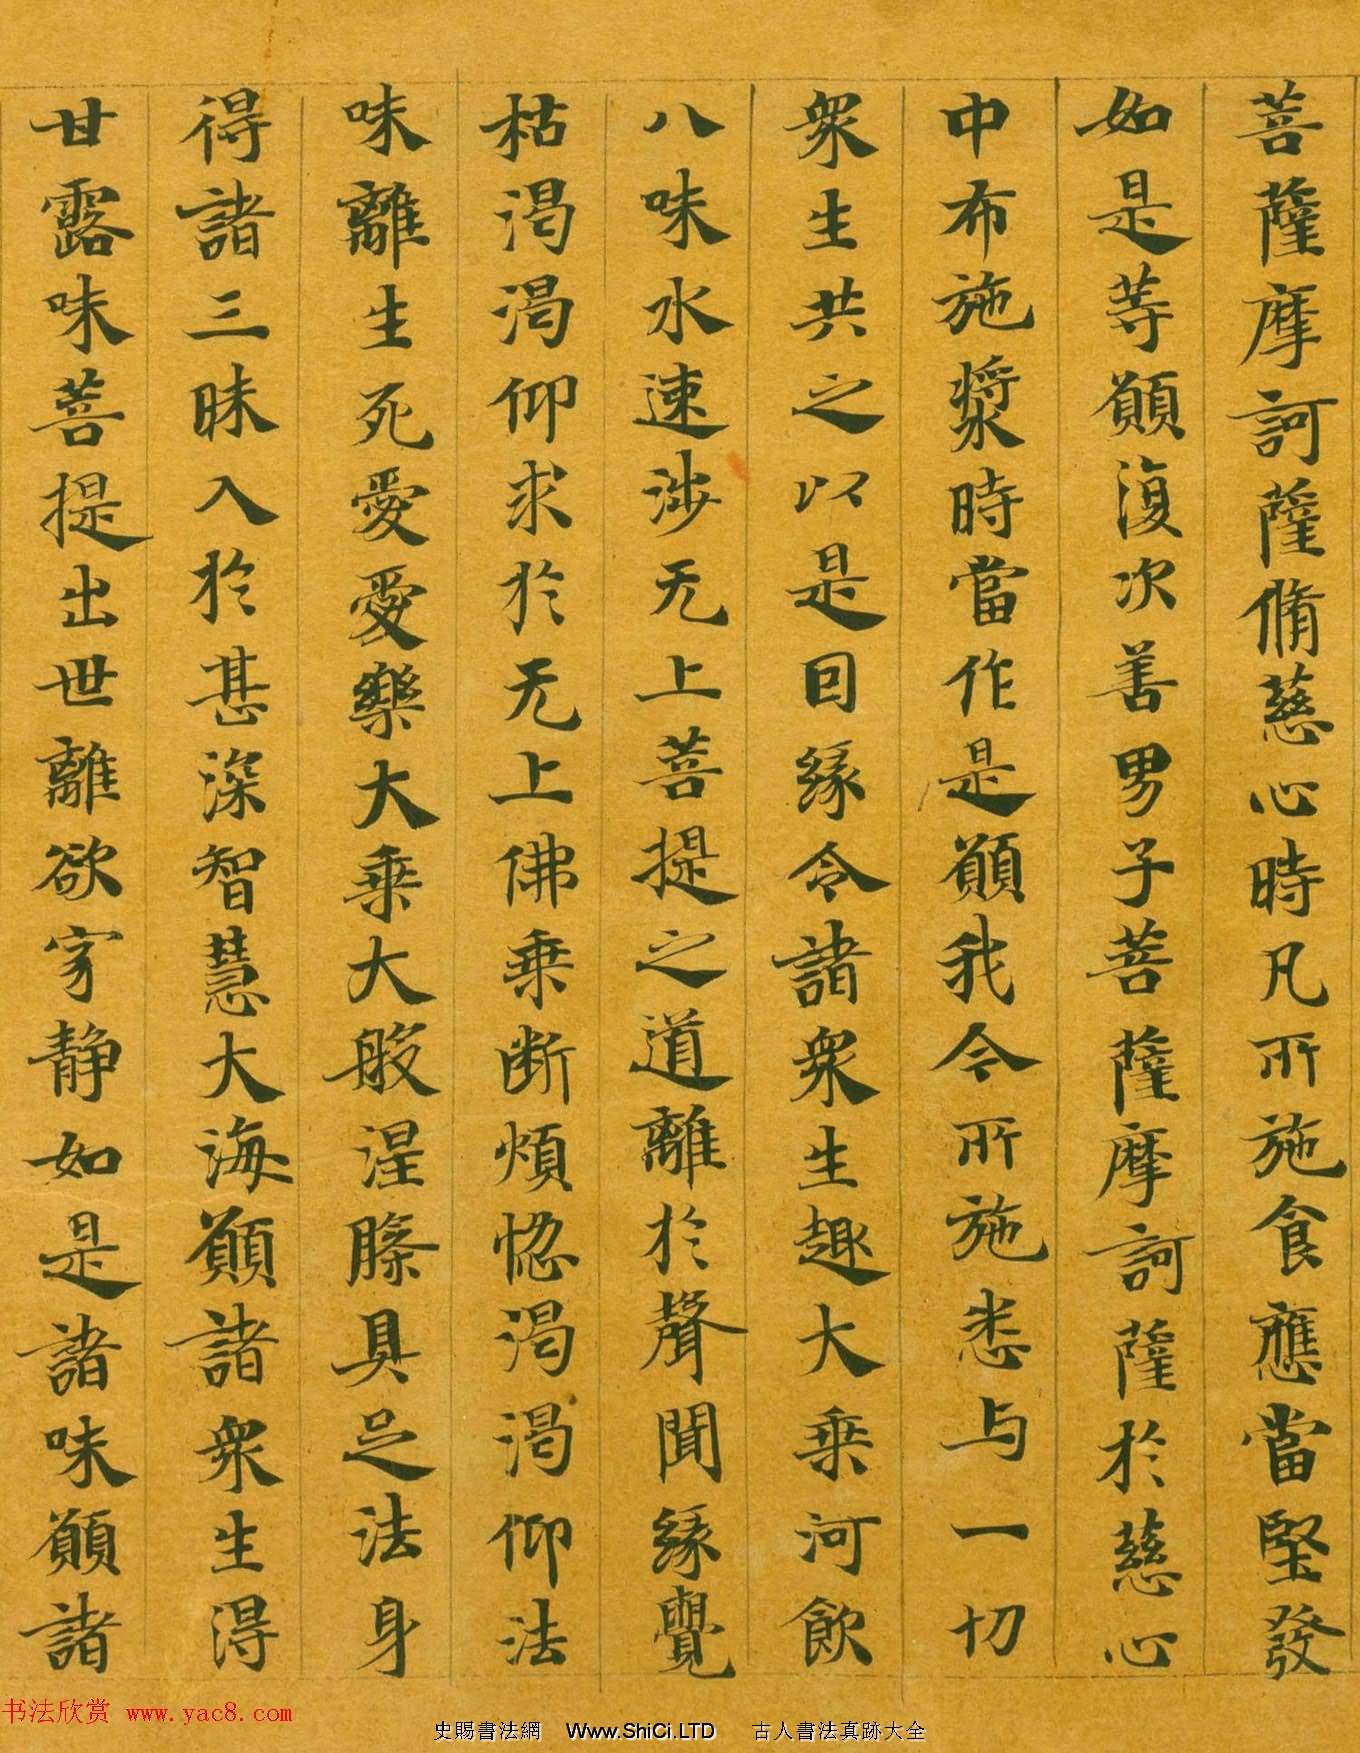 菩薩摩訶薩脩慈心時凡所施食應當堅發
如是等願復次善男子菩薩摩訶薩於慈心
中布施漿時當作是願我今所施悉与一切
衆生共之以是回緣令諸衆生趣大乗河飲
八味水速涉无上菩提之道離於聲聞緣覺
枯渴渴仰求於无上佛乗断煩惚渴渴仰法
味離生死愛愛樂大乗大般涅縣具足法身
得諸三昧入於甚深智慧大海願諸衆生得
甘露味菩提出世離欲家静如是諸味願諸
书法欣赏 www.yac8.com
史賜書法網 Www.ShiCi.LTD 古人書法真跡大全